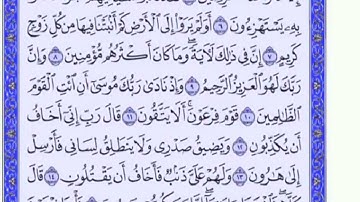 بِهِۦ يَسْتَهْزِءُونَ ٦ أَوَلَمْ يَرَوْا۟ إِلَى ٱلْأَرْضِ كَمْ أَنۢبَتْنَا فِيهَا مِن كُلِّ زَوْجٍ
كَرِيمٍ ٧ إِنَّ فِى ذَٰلِكَ لَءَايَةً ۖ وَمَا كَانَ أَكْثَرُهُم مُّؤْمِنِينَ ٨ وَإِنَّ
رَبَّكَ لَهُوَ ٱلْعَزِيزُ ٱلرَّحِيمُ ٩ وَإِذْ نَادَىٰ رَبُّكَ مُوسَىٰٓ أَنِ ٱئْتِ ٱلْقَوْمَ
ٱلظَّٰلِمِينَ ١٠ قَوْمَ فِرْعَوْنَ ۚ أَلَا يَتَّقُونَ ١١ قَالَ رَبِّ إِنِّىٓ أَخَافُ
أَن يُكَذِّبُونِ ١٢ وَيَضِيقُ صَدْرِى وَلَا يَنطَلِقُ لِسَانِى فَأَرْسِلْ
إِلَىٰ هَٰرُونَ ١٣ وَلَهُمْ عَلَىَّ ذَنۢبٌ فَأَخَافُ أَن يَقْتُلُونِ ١٤ قَالَ